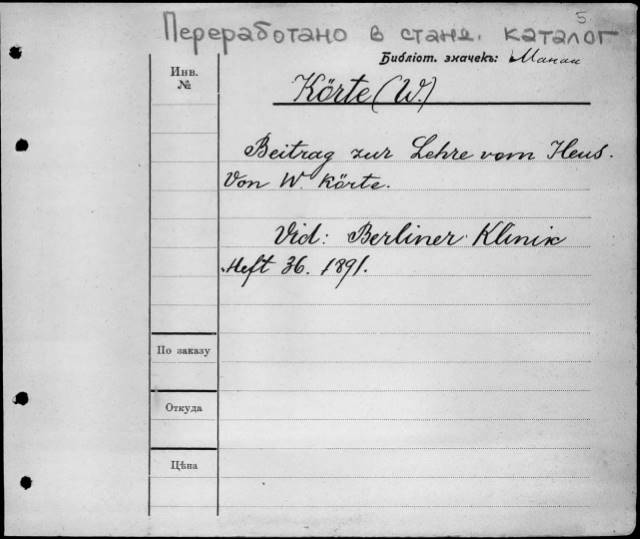 5.
Переработано в станд. каталог
Библіот. значекъ:
Инв.
№
Körte (W.)
Beitrag zur Lehre vom Ileus.
Von W. Körte.
Vid: Berliner Klinik
Heft 36. 1891.
По заказу
Откуда
Цѣна